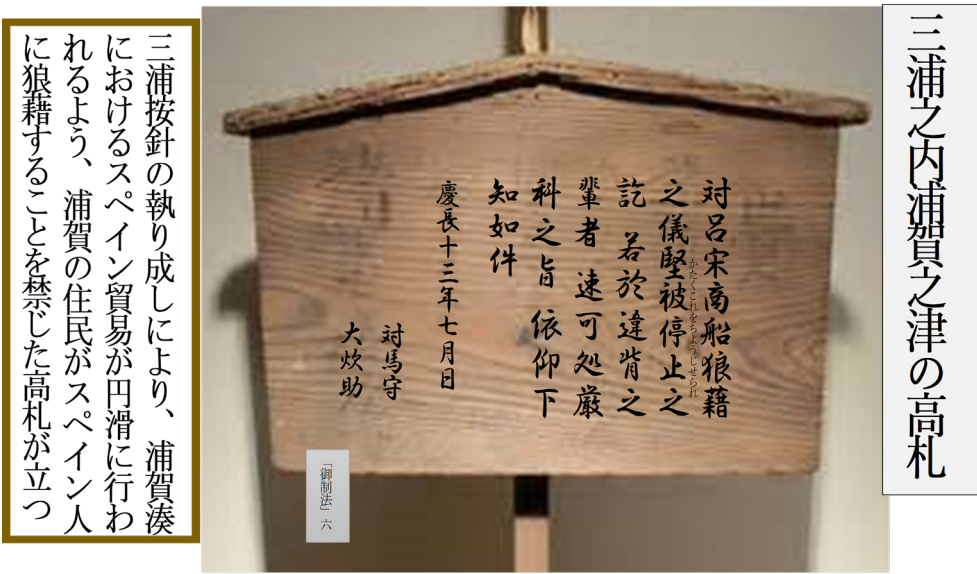 三浦之内浦賀之津の高札
対呂宋商船狼藉
之儀堅被停止之
かたくこれをちようじせられ
訖　若於違背之
輩者　速可処厳
科之旨　依仰下
知如件
慶長十三年七月日
対馬守
大炊助
「御制法」六
三浦按針の執り成しにより、浦賀湊
におけるスペイン貿易が円滑に行わ
れるよう、浦賀の住民がスペイン人
に狼藉することを禁じた高札が立つ